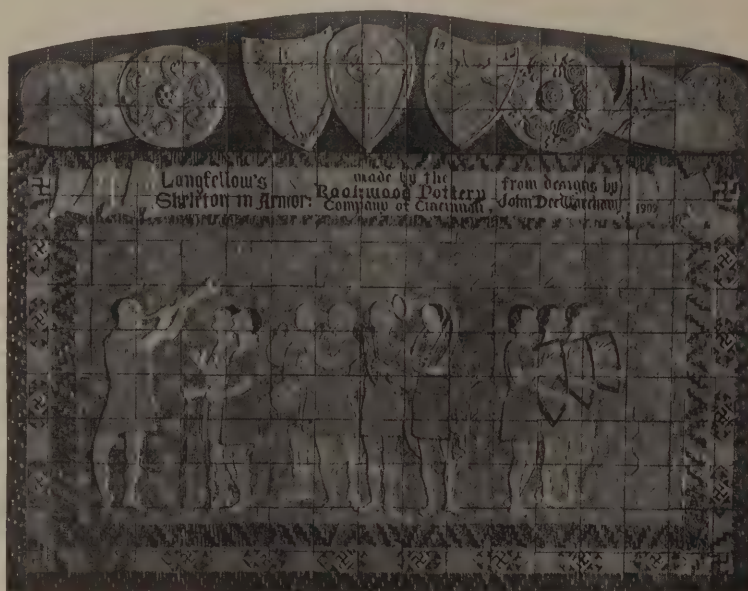 Longfellow's
Skeleton in Armor:
made by the
Rookwood Pottery
Company of Cincinnati,
from designs by
John Dee Wareham
1909